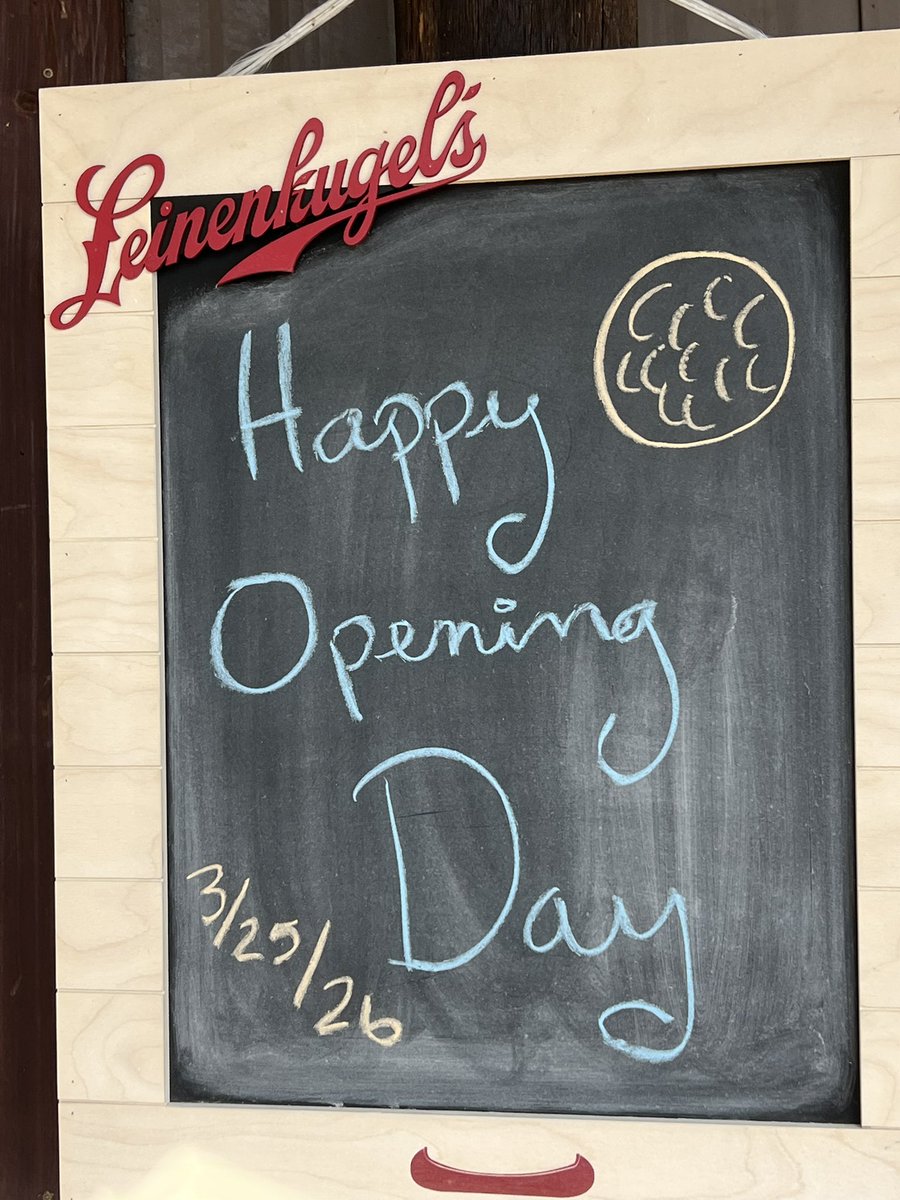 Leinenkugel's
Happy
Opening
Day
3/25/26